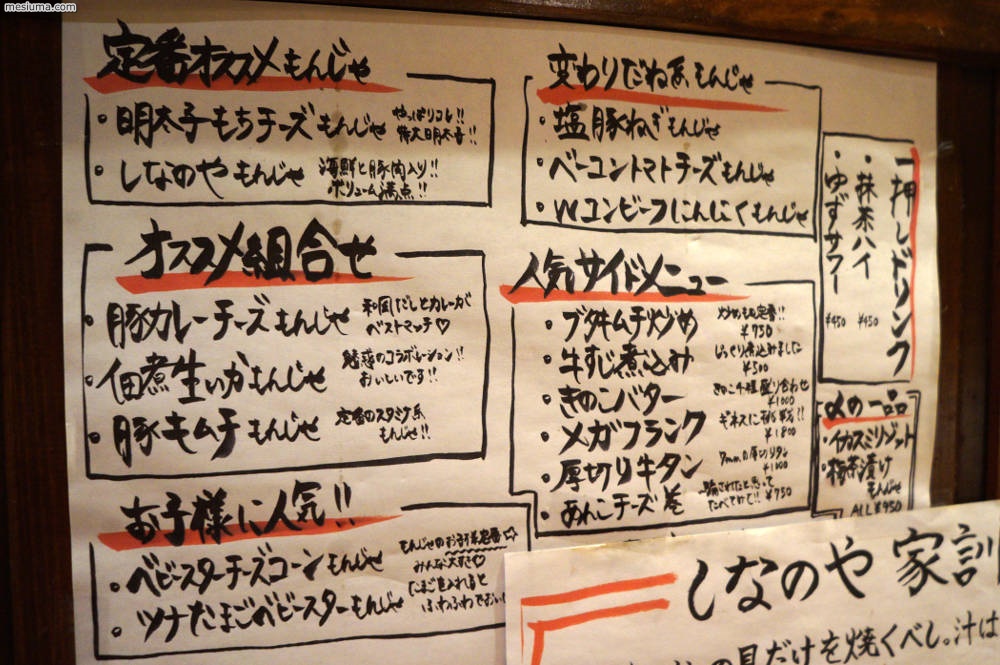 mesiuma.com
定番オススメもんじゃ
・明太子もちチーズもんじゃ
やっぱりコレ!!
特大明太子!!
・しなのやもんじゃ
海鮮と豚肉入り!!
ボリューム満点!!
オススメ組合せ
・豚カレーチーズもんじゃ
和風だしとカレーが
ベストマッチ♡
・佃煮生いかもんじゃ
魅惑のコラボレーション!!
おいしいです!!
・豚キムチもんじゃ
定番のスタミナ系
もんじゃ!!
お子様に人気!!
・ベビースターチーズコーンもんじゃ
もんじゃのお子様定番☆
みんな大すき♡
・ツナたまごベビースターもんじゃ
たまごを入れると
ふわふわでおい
変わりだねもんじゃ
・塩豚ねぎもんじゃ
・ベーコントマトチーズもんじゃ
・Wコンビーフにんにくもんじゃ
人気サイドメニュー
・ブタキムチ炒め
炒めもの定番!!
¥750
・牛すじ煮込み
じっくり煮込みました
¥500
・きのこバター
きのこ4種盛り合わせ
¥1000
・メガフランク
ギネスに挑戦!!
¥1800
・厚切り牛タン
7mmの厚切りタン
¥1000
・あんこチーズ巻
一騙されたと思って
たべてみて!! ¥750
一押しドリンク
・抹茶ハイ ¥450
・ゆずサワー ¥450
〆の一品
・イカスミリゾット
・梅茶漬け
もんじゃ
ALL¥950
しなのや 家訓
の具だけを焼くべし。汁は